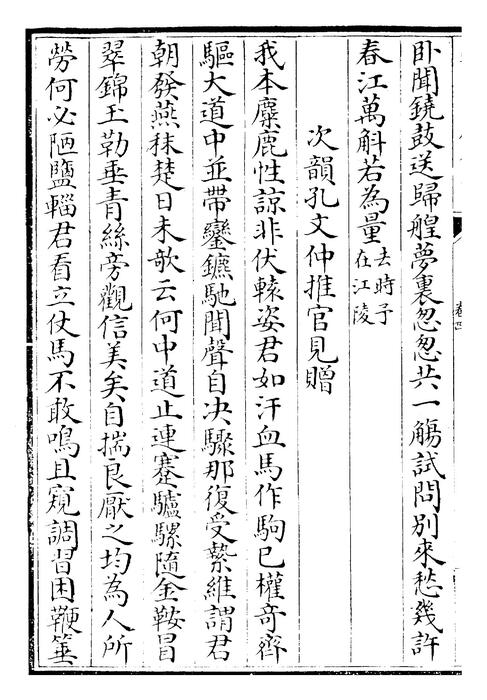 臥聞鐃鼓送歸艎夢裏怱怱共一觴試問別來愁幾許
春江萬斛若為量去時予在江陵
次韻孔文仲推官見贈
我本麋鹿性諒非伏轅姿君如汗血馬作駒已權奇齊
驅大道中並帶鑾鑣馳聞聲自決驟那復受縶維謂君
朝發燕秣楚日未欹云何中道止連蹇驢騾隨金鞍冒
翠錦玉勒垂青絲旁觀信美矣自揣良厭之均為人所
勞何必陋鹽輜君看立仗馬不敢鳴且窺調習困鞭箠
卷四